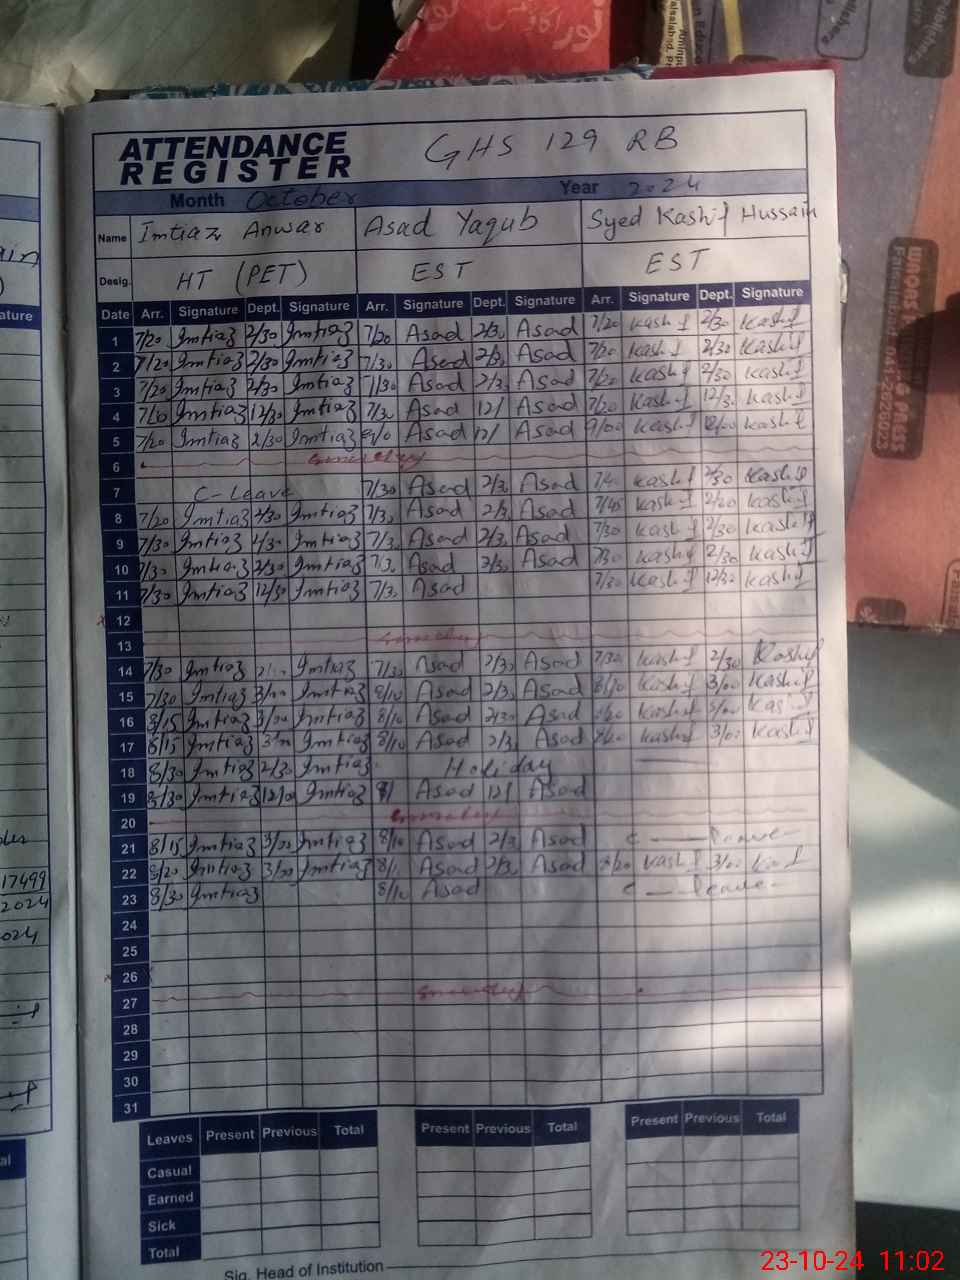 ATTENDANCE REGISTER GHS 129 RB
Month October Year 2024
Name Imtiaz Anwar Asad Yaqub Syed Kashif Hussain
Desig. HT (PET) EST EST
Date Arr. Signature Dept. Signature Arr. Signature Dept. Signature Arr. Signature Dept. Signature
1 7/20 Imtiaz 2/30 Imtiaz 7/20 Asad 2/3 Asad 7/20 Kashif 2/30 Kashif
2 7/20 Imtiaz 2/30 Imtiaz 7/3 Asad 2/3 Asad 7/20 Kashif 2/30 Kashif
3 7/20 Imtiaz 2/30 Imtiaz 7/30 Asad 2/3 Asad 7/20 Kashif 2/30 Kashif
4 7/20 Imtiaz 12/30 Imtiaz 7/3 Asad 12/ Asad 7/20 Kashif 12/3 Kashif
5 7/20 Imtiaz 2/30 Imtiaz Asad 12/ Asad 9/00 Kashif 12/00 Kashif
6
7 C-Leave 7/30 Asad 2/3 Asad 7/4 Kashif 2/30 Kashif
8 7/20 Imtiaz 2/30 Imtiaz 7/3 Asad 2/3 Asad 7/45 Kashif Kashif
9 7/30 Imtiaz 2/30 Imtiaz 7/3 Asad 2/3 Asad 7/30 Kashif 2/30 Kashif
10 7/30 Imtiaz 2/30 Imtiaz 7/3 Asad 2/3 Asad 7/30 Kashif 2/30 Kashif
11 7/30 Imtiaz 12/30 Imtiaz 7/3 Asad 7/30 Kashif 12/30 Kashif
12
13
14 7/30 Imtiaz Imtiaz 7/30 Asad 2/3 Asad 7/30 Kashif 2/30 Kashif
15 7/30 Imtiaz 3/00 Imtiaz 8/10 Asad 2/3 Asad Kashif 3/00 Kashif
16 8/15 Imtiaz 3/00 Imtiaz 8/10 Asad 2/30 Asad Kashif Kashif
17 8/15 Imtiaz Imtiaz 8/10 Asad 2/3 Asad Kashif 3/00 Kashif
18 8/30 Imtiaz 2/30 Imtiaz Holiday
19 8/30 Imtiaz 12/00 Imtiaz 8/ Asad 12/ Asad
20
21 8/15 Imtiaz 3/00 Imtiaz 8/10 Asad 2/3 Asad C — Leave
22 8/20 Imtiaz 3/00 Imtiaz 8/1 Asad 2/3 Asad Kashif 3/00
23 8/30 Imtiaz 8/10 Asad C — Leave
24
25
26
27
28
29
30
31
Leaves Present Previous Total Present Previous Total Present Previous Total
Casual
Earned
Sick
Total
Sig. Head of Institution
17499
2024
024
23-10-24 11:02